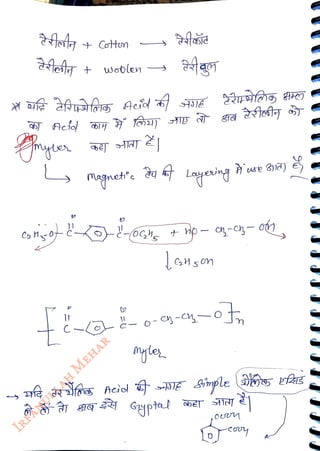 टेरीलीन + Cotton → टेरीकॉट
टेरीलीन + woolen → टेरीवुल
* यदि टेरेफ्थेलिक Acid की जगह टेरेफ्थेलिक अम्ल
का Acid काम में लिया जाए तो अब टेरीलीन को
Myler कहा जाता है।
→ Magnetic टेप की Layering में use आता है
C2H5-O-C(=O)-C6H4-C(=O)-OC2H5 + HO-CH2-CH2-OH
↓ C2H5OH
[-C(=O)-C6H4-C(=O)-O-CH2-CH2-O-]n
Myler
→ यदि टेरेथैलिक Acid की जगह Simple थैलिक एसिड
ले लो तो अब इसे Glyptal कहा जाता है।
COOH
COOH
IRFANULLAH MEHAR